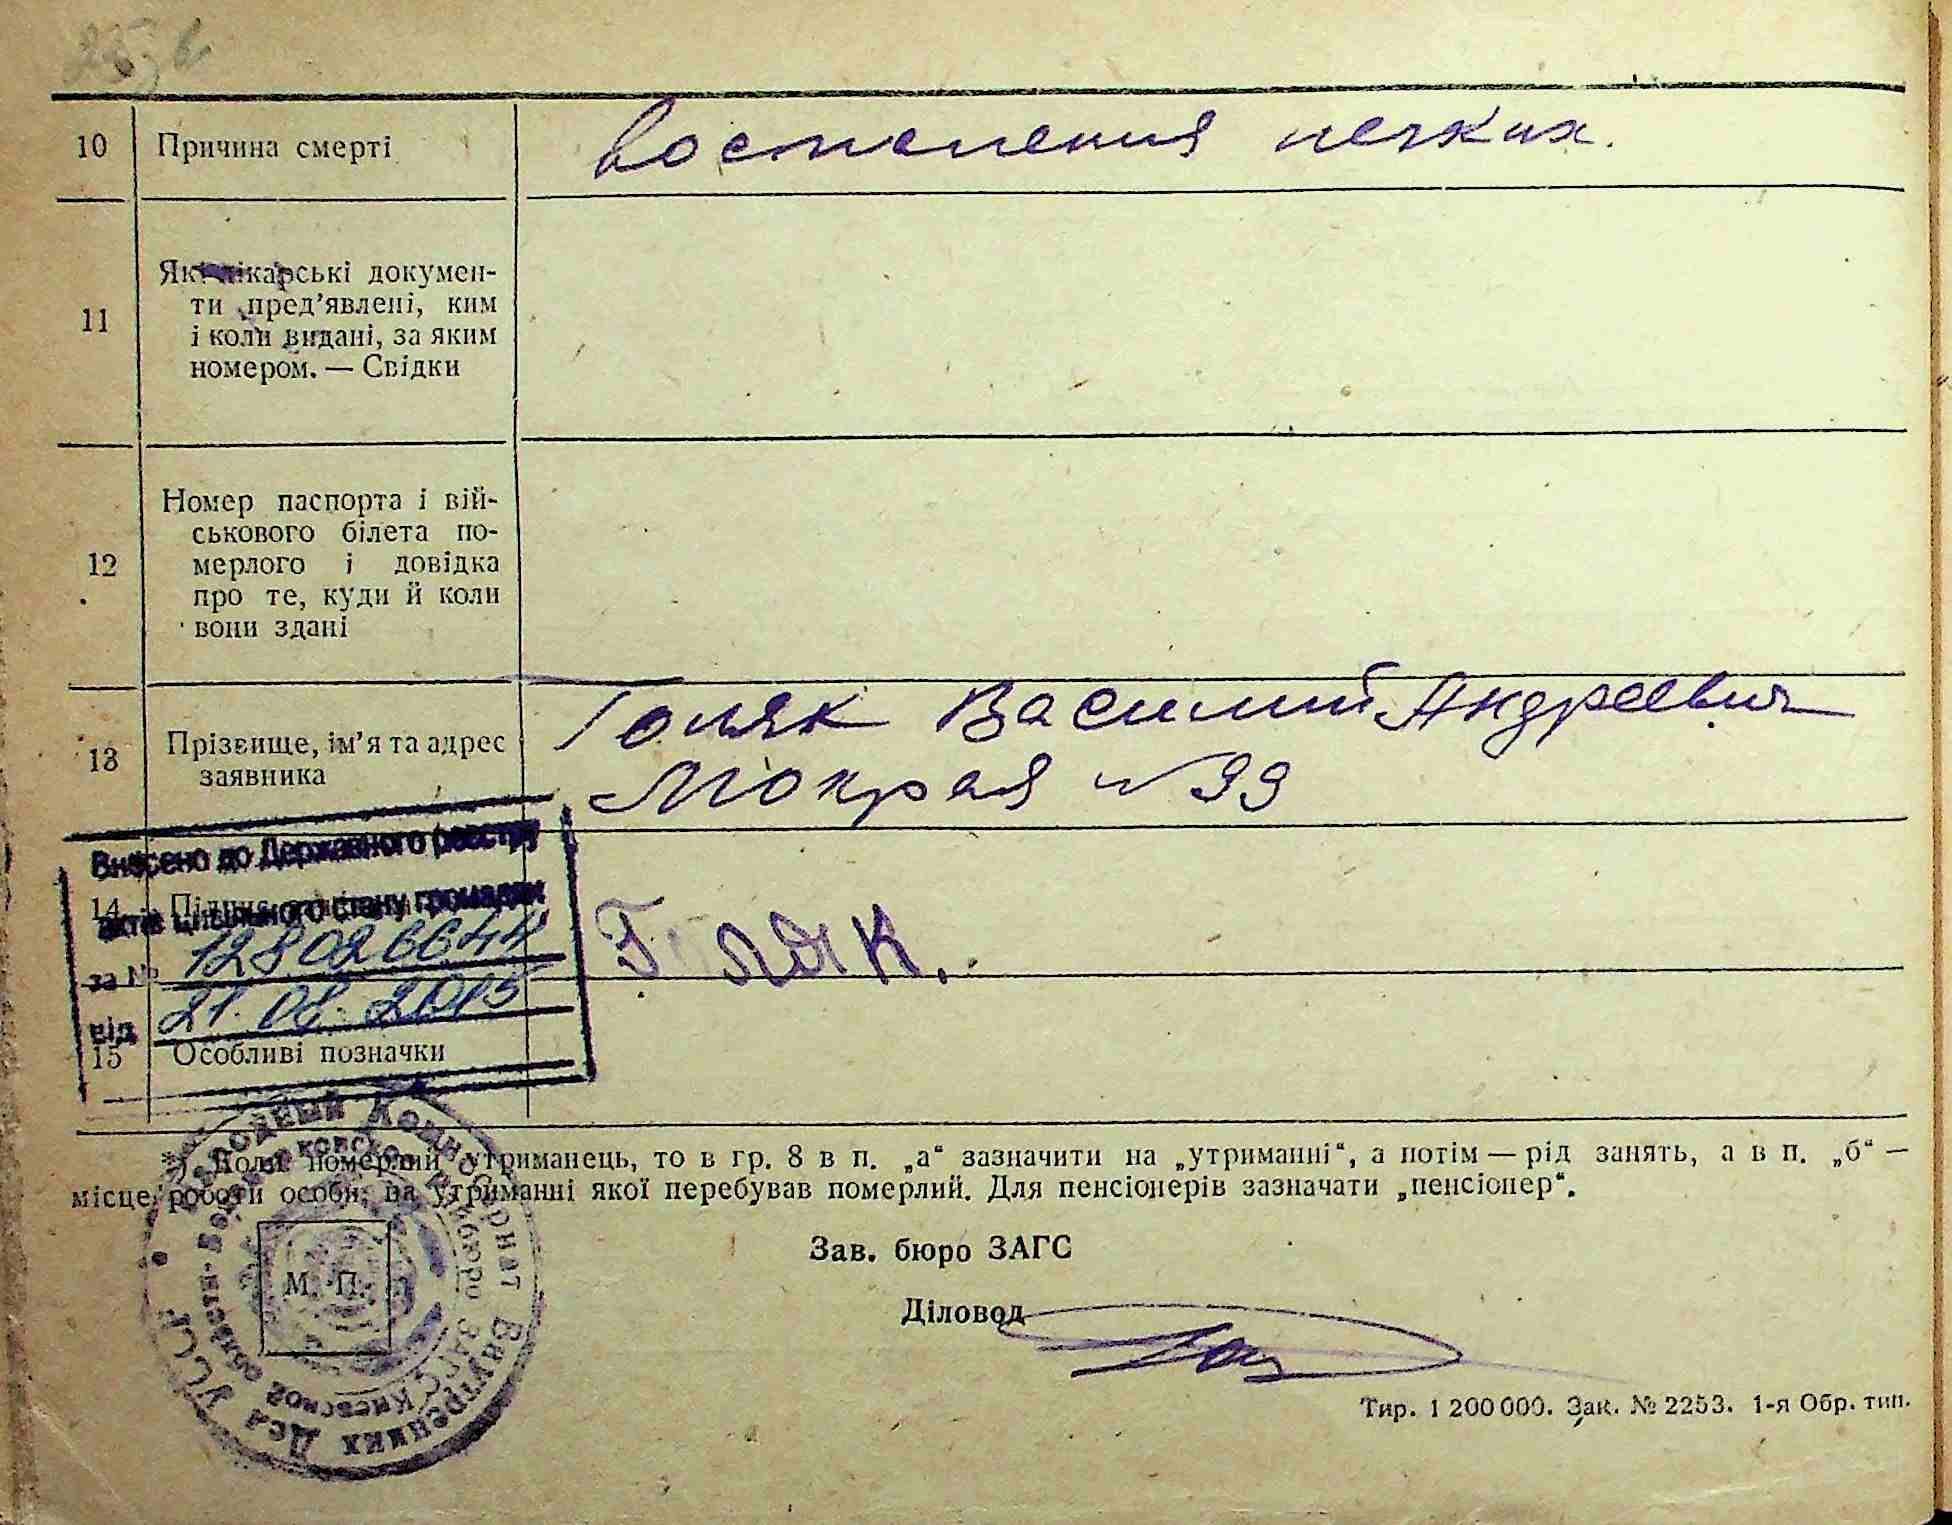 10 Причина смерті востпеления легких.
11 Які лікарські докумен-
ти пред'явлені, ким
і коли видані, за яким
номером. — Свідки
12 Номер паспорта і вій-
ськового білета по-
мерлого і довідка
про те, куди й коли
вони здані
13 Прізвище, ім'я та адрес
заявника
Голяк Василий Андреевич
Мокрая № 99
Внесено до Державного реєстру
актів цивільного стану громадян
за № 12802664
від 21.08.2015
14 Підпис
Голяк.
15 Особливі позначки
*) Коли померлий утриманець, то в гр. 8 в п. „а“ зазначити на „утриманні“, а потім — рід занять, а в п. „б“ —
місце роботи особи, на утриманні якої перебував померлий. Для пенсіонерів зазначати „пенсіонер“.
Народный Комиссариат Внутренних Дел УССР
бюро ЗАГС Киевской области
М. П.
Зав. бюро ЗАГС
Діловод
Тир. 1 200 000. Зак. № 2253. 1-я Обр. тип.